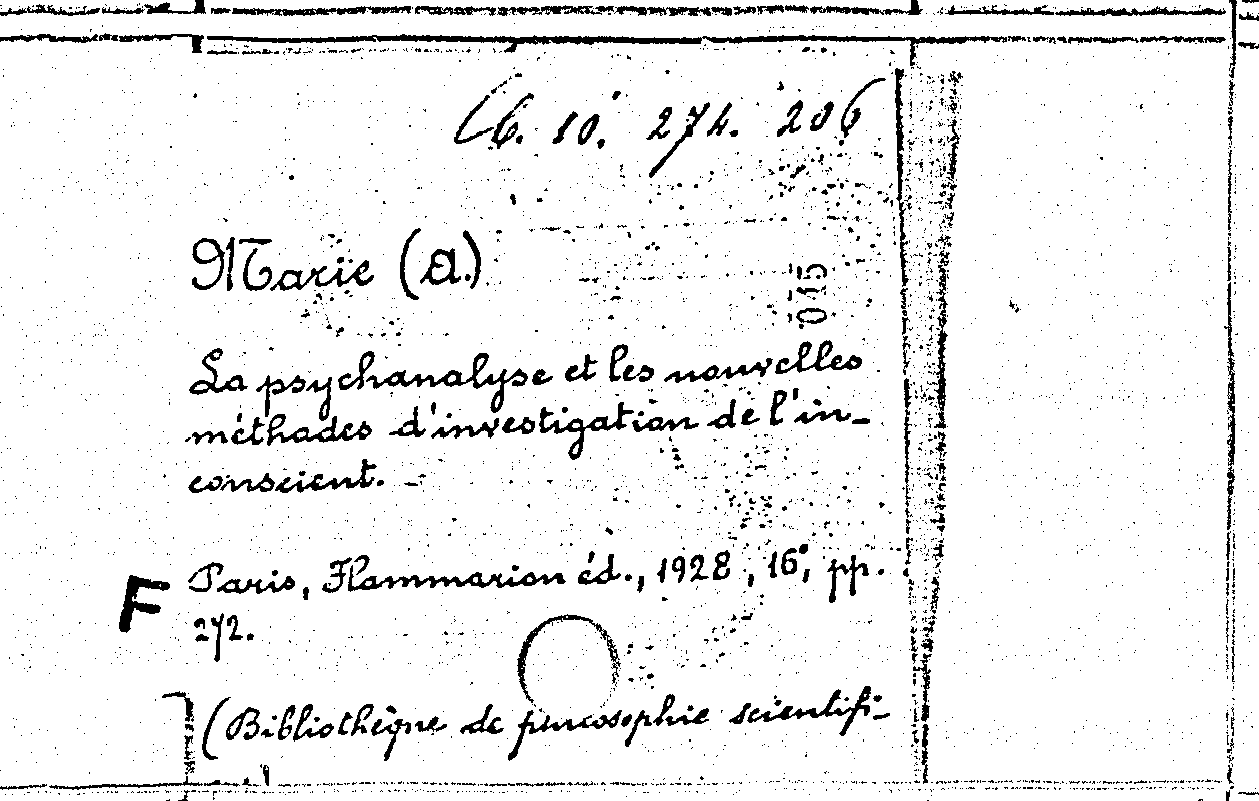 C6. 10. 274. 206
Marie (A.)
015
La psychanalyse et les nouvelles
méthodes d'investigation de l'in-
conscient. -
Paris, Flammarion éd., 1928, 16°, pp.
F
272.
(Bibliothèque de philosophie scientifi-